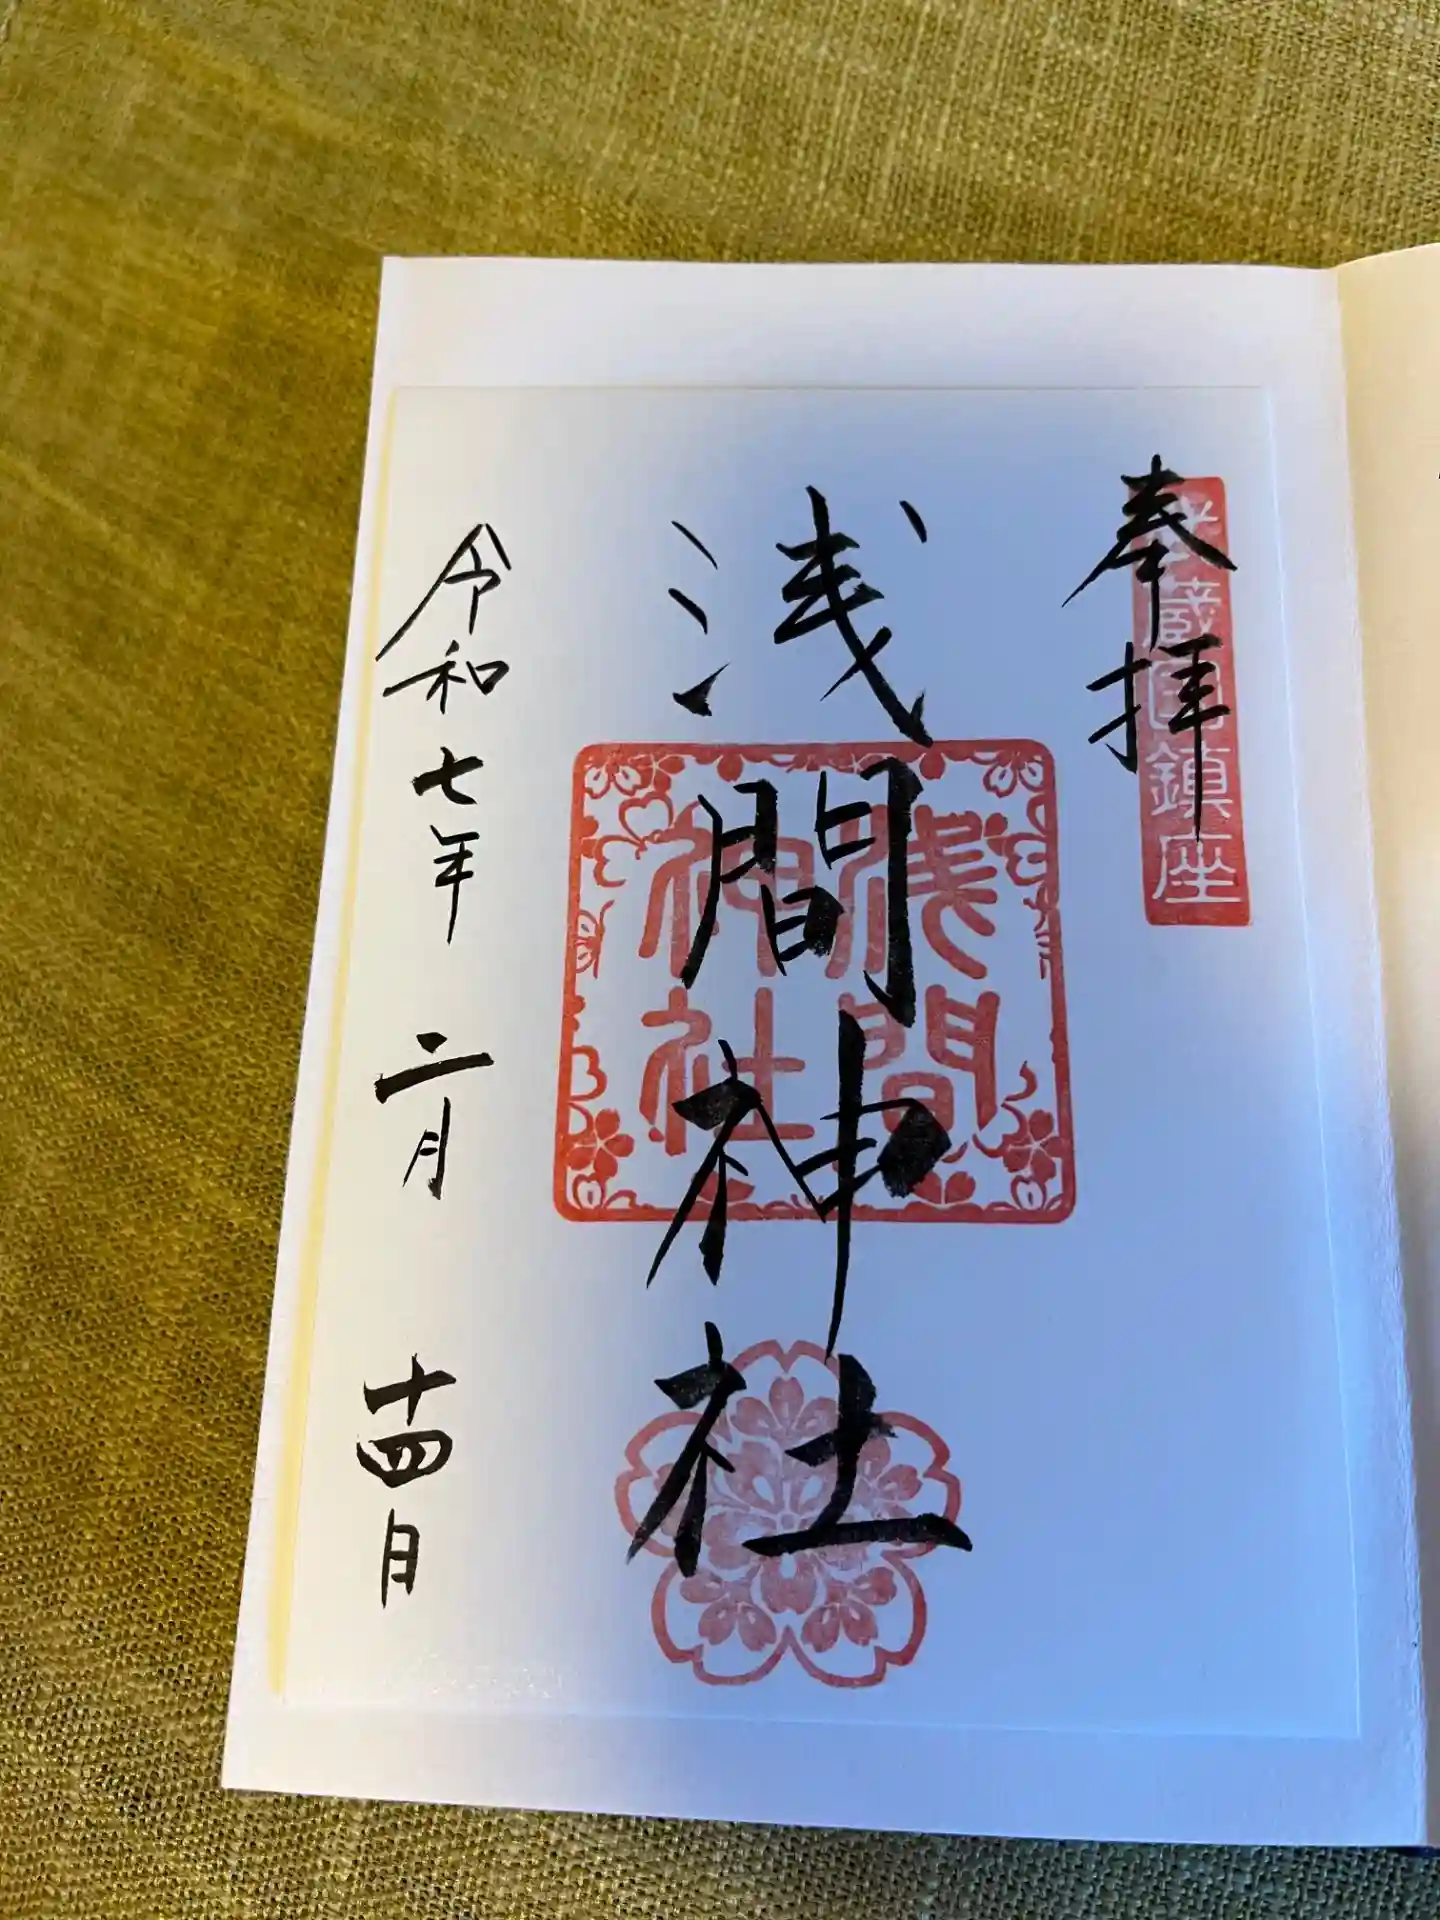 奉拝
武蔵国鎮座
浅間神社
浅間
神社
令和七年 二月 十四日